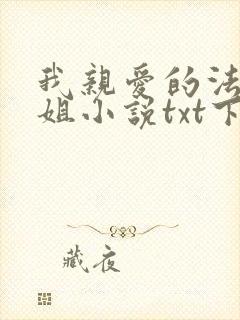 我親愛的法
姐小說txt下
藏夜